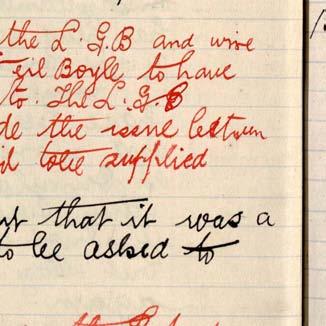 the L. G. B and wire
Neil Boyle to have
to. The L. G. B
de the issue between
il to be supplied
ut that it was a
to be asked to
the